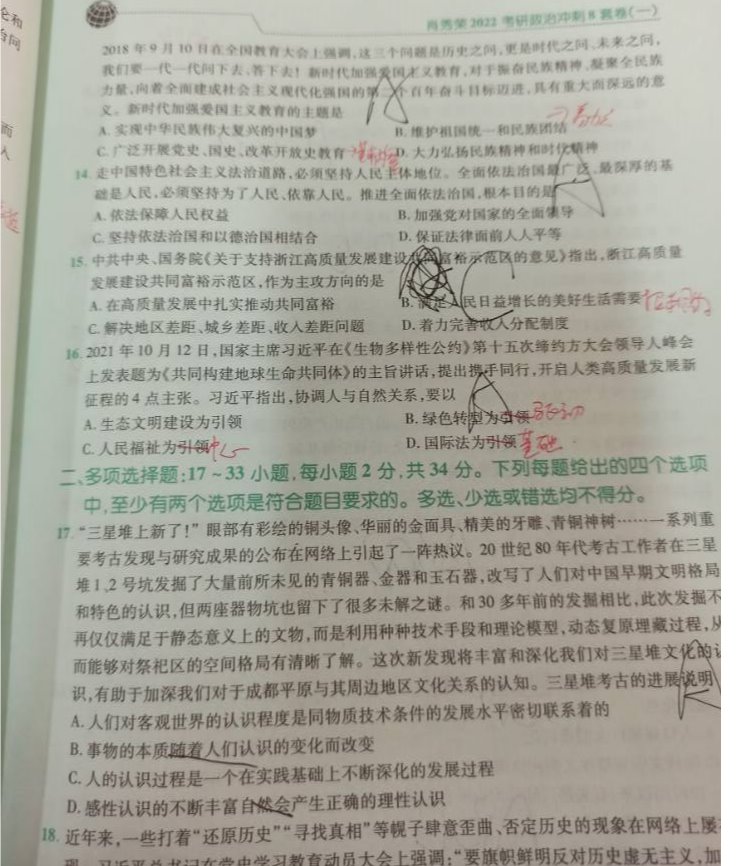 仑和
合问
而
人
肖秀荣2022考研政治冲刺8套卷(一)
2018年9月10日在全国教育大会上强调,这三个问题是历史之问,更是时代之问、未来之问,
我们要一代一代问下去、答下去!新时代加强爱国主义教育,对于振奋民族精神、凝聚全民族
力量,向着全面建成社会主义现代化强国的第二个百年奋斗目标迈进,具有重大而深远的意
义。新时代加强爱国主义教育的主题是
A. 实现中华民族伟大复兴的中国梦 B. 维护祖国统一和民族团结
C. 广泛开展党史、国史、改革开放史教育 D. 大力弘扬民族精神和时代精神
14. 走中国特色社会主义法治道路,必须坚持人民主体地位。全面依法治国最广泛、最深厚的基
础是人民,必须坚持为了人民、依靠人民。推进全面依法治国,根本目的是
A. 依法保障人民权益 B. 加强党对国家的全面领导
C. 坚持依法治国和以德治国相结合 D. 保证法律面前人人平等
15. 中共中央、国务院《关于支持浙江高质量发展建设共同富裕示范区的意见》指出,浙江高质量
发展建设共同富裕示范区,作为主攻方向的是
A. 在高质量发展中扎实推动共同富裕 B. 满足人民日益增长的美好生活需要
C. 解决地区差距、城乡差距、收入差距问题 D. 着力完善收入分配制度
16. 2021年10月12日,国家主席习近平在《生物多样性公约》第十五次缔约方大会领导人峰会
上发表题为《共同构建地球生命共同体》的主旨讲话,提出携手同行,开启人类高质量发展新
征程的4点主张。习近平指出,协调人与自然关系,要以
A. 生态文明建设为引领 B. 绿色转型为引领 驱动
C. 人民福祉为引领 中心 D. 国际法为引领 基础
二、多项选择题:17~33小题,每小题2分,共34分。下列每题给出的四个选项
中,至少有两个选项是符合题目要求的。多选、少选或错选均不得分。
17. “三星堆上新了!”眼部有彩绘的铜头像、华丽的金面具、精美的牙雕、青铜神树……一系列重
要考古发现与研究成果的公布在网络上引起了一阵热议。20世纪80年代考古工作者在三星
堆1、2号坑发掘了大量前所未见的青铜器、金器和玉石器,改写了人们对中国早期文明格局
和特色的认识,但两座器物坑也留下了很多未解之谜。和30多年前的发掘相比,此次发掘不
再仅仅满足于静态意义上的文物,而是利用种种技术手段和理论模型,动态复原埋藏过程,从
而能够对祭祀区的空间格局有清晰了解。这次新发现将丰富和深化我们对三星堆文化的认
识,有助于加深我们对于成都平原与其周边地区文化关系的认知。三星堆考古的进展说明
A. 人们对客观世界的认识程度是同物质技术条件的发展水平密切联系着的
B. 事物的本质随着人们认识的变化而改变
C. 人的认识过程是一个在实践基础上不断深化的发展过程
D. 感性认识的不断丰富自然会产生正确的理性认识
18. 近年来,一些打着“还原历史”“寻找真相”等幌子肆意歪曲、否定历史的现象在网络上屡
现。习近平总书记在党史学习教育动员大会上强调:“要旗帜鲜明反对历史虚无主义,加